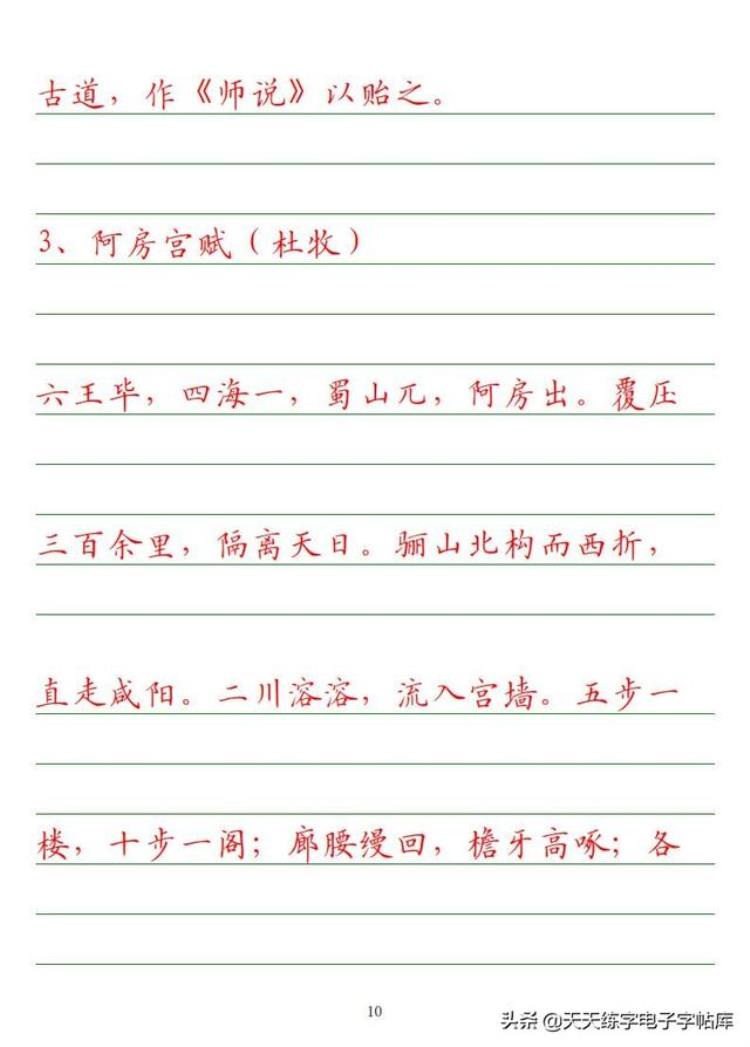 古道，作《师说》以贻之。
3、阿房宫赋（杜牧）
六王毕，四海一，蜀山兀，阿房出。覆压
三百余里，隔离天日。骊山北构而西折，
直走咸阳。二川溶溶，流入宫墙。五步一
楼，十步一阁；廊腰缦回，檐牙高啄；各
10
头条 @天天练字电子字帖库